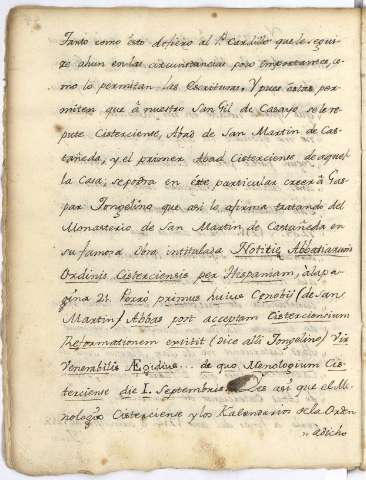 Tanto como ésto defiero al P. Cardillo que le segui-
ré ahun en las circunstancias poco importantes, co-
mo lo permitan las Escrituras. Y pues éstas per-
miten que á nuestro San Gil de Casayo se le re-
pute Cisterciense, Abad de San Martin de Cas-
tañeda, y el primer Abad Cisterciense de aque-
lla Casa; se podra en éste particular creer á Gas-
par Jongelino que asi lo afirma tratando del
Monasterio de San Martin de Castañeda en
su famosa Obra intitulada Notitiæ Abbatiarum
Ordinis Cisterciensis per Hispaniam, à la pa-
gina 21. Porro primus huius Cœnobij (de San
Martin) Abbas post acceptam Cisterciensium
Reformationem extitit (dice alli Jongelino) Vir
Venerabilis Ægidius... de quo Menologium Cis-
terciense die I. Septembris. Des asi que el Me-
nologio Cisterciense y los Kalendarios de la Orden
à dicho